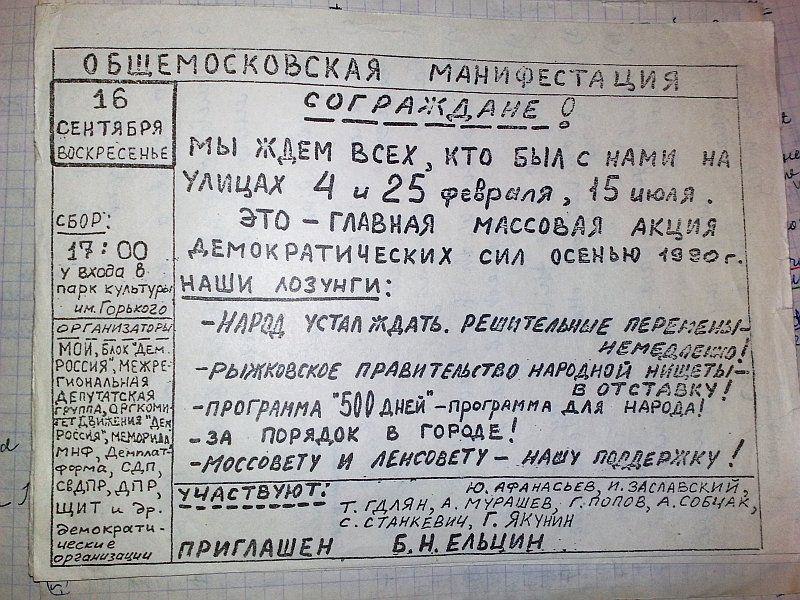 ОБЩЕМОСКОВСКАЯ МАНИФЕСТАЦИЯ
16
СЕНТЯБРЯ
ВОСКРЕСЕНЬЕ
СБОР:
17:00
у входа в
парк культуры
им. Горького
ОРГАНИЗАТОРЫ
МОИ, БЛОК "ДЕМ.
РОССИЯ", МЕЖРЕ-
ГИОНАЛЬНАЯ
ДЕПУТАТСКАЯ
ГРУППА, ОРГКОМИ-
ТЕТ ДВИЖЕНИЯ "ДЕМ
РОССИЯ", МЕМОРИАЛ,
МНФ, Демплат-
форма, СДП,
СвДПР, ДПР,
ЩИТ и др.
демократи-
ческие
организации
СОГРАЖДАНЕ!
МЫ ЖДЕМ ВСЕХ, КТО БЫЛ С НАМИ НА
УЛИЦАХ 4 и 25 февраля, 15 июля.
ЭТО – ГЛАВНАЯ МАССОВАЯ АКЦИЯ
ДЕМОКРАТИЧЕСКИХ СИЛ ОСЕНЬЮ 1990 г.
НАШИ ЛОЗУНГИ:
– НАРОД УСТАЛ ЖДАТЬ. РЕШИТЕЛЬНЫЕ ПЕРЕМЕНЫ –
НЕМЕДЛЕННО!
– РЫЖКОВСКОЕ ПРАВИТЕЛЬСТВО НАРОДНОЙ НИЩЕТЫ –
В ОТСТАВКУ!
– ПРОГРАММА "500 ДНЕЙ" – ПРОГРАММА ДЛЯ НАРОДА!
– ЗА ПОРЯДОК В ГОРОДЕ!
– МОССОВЕТУ И ЛЕНСОВЕТУ – НАШУ ПОДДЕРЖКУ!
УЧАСТВУЮТ: Ю. АФАНАСЬЕВ, И. ЗАСЛАВСКИЙ,
Т. ГДЛЯН, А. МУРАШЕВ, Г. ПОПОВ, А. СОБЧАК,
С. СТАНКЕВИЧ, Г. ЯКУНИН
ПРИГЛАШЕН Б. Н. ЕЛЬЦИН